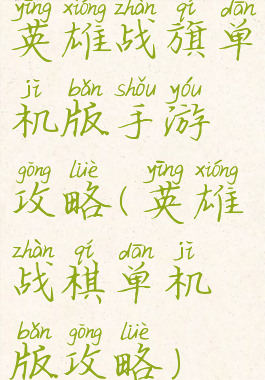 yīng xióng zhàn qí dān
英雄战旗单
jī bǎn shǒu yóu
机版手游
gōng lüè yīng xióng
攻略(英雄
zhàn qí dān jī
战棋单机
bǎn gōng lüè
版攻略)